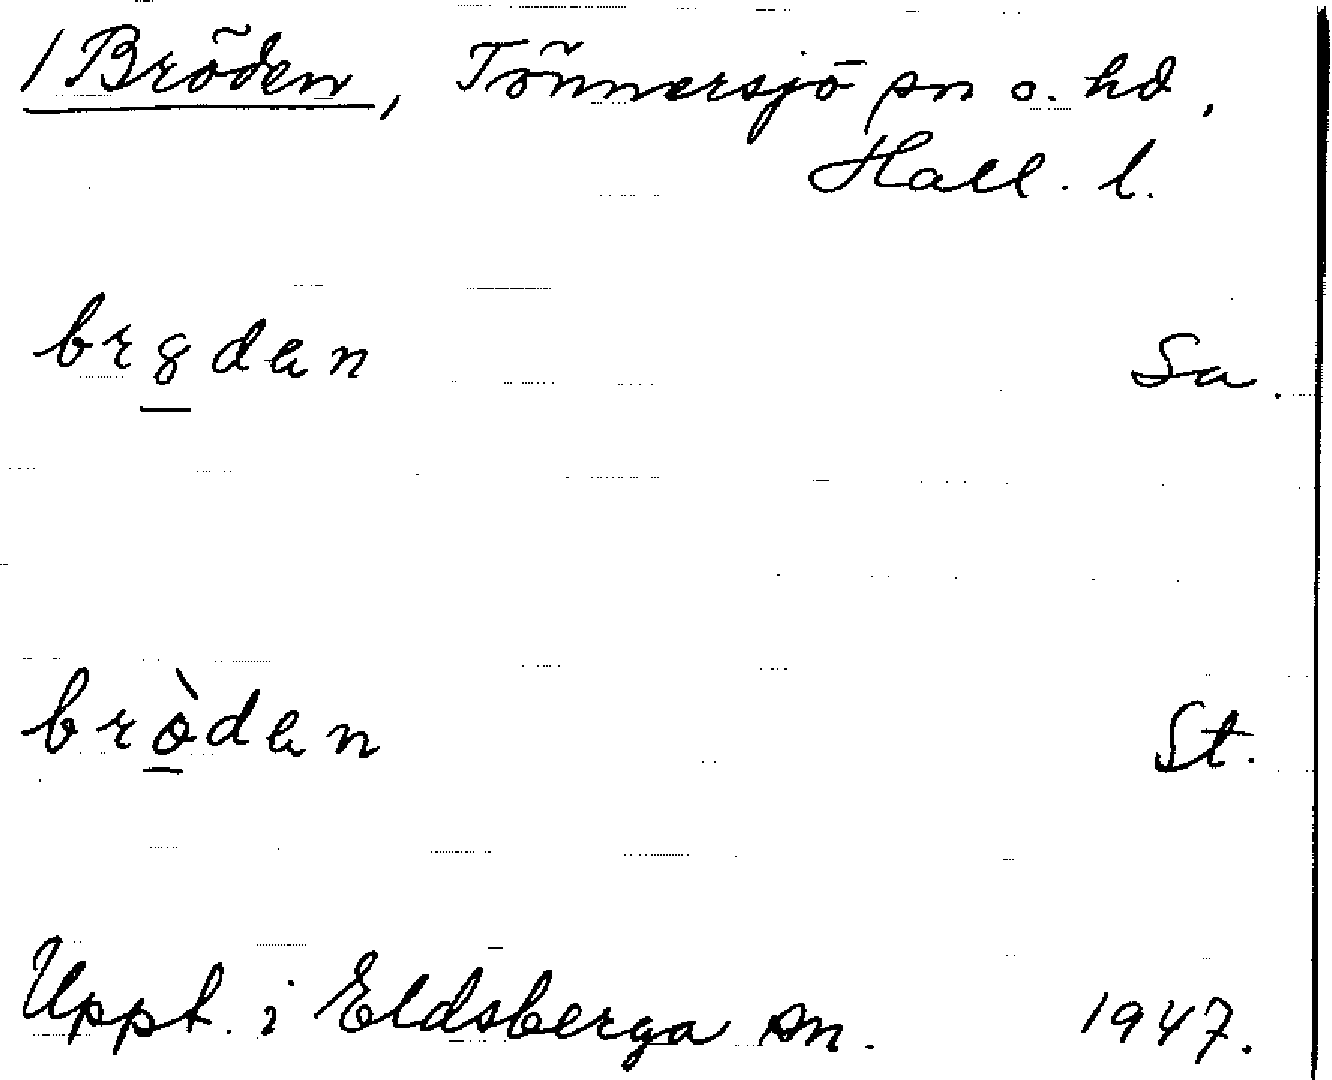 / Bröden, Tönnersjö sn o. hd.
Hall. l.
br8dan Sa.
bròdan St.
Uppt. i Eldsberga sn. 1947.